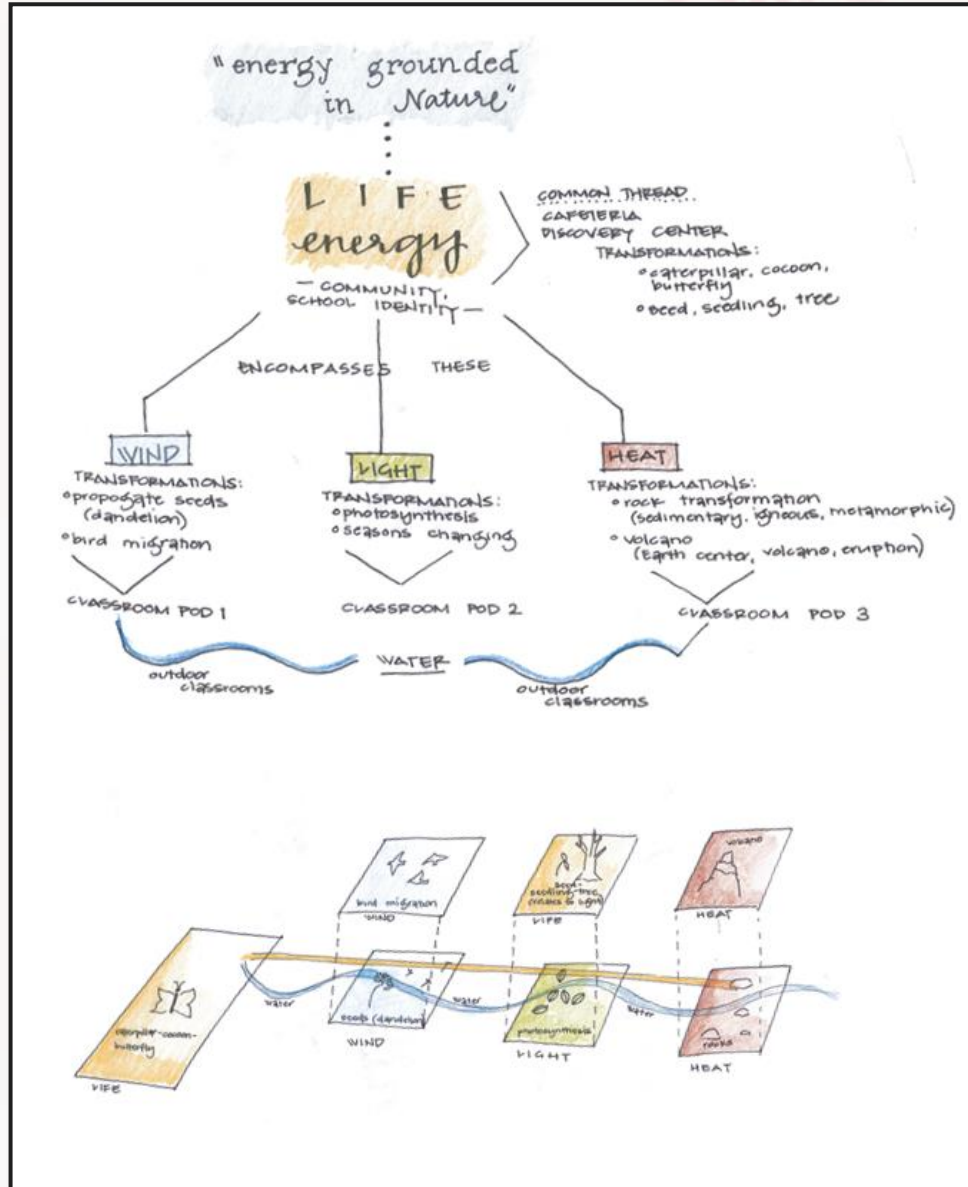 "energy grounded
in Nature"
LIFE
energy
— COMMUNITY,
SCHOOL IDENTITY —
COMMON THREAD
CAFETERIA
DISCOVERY CENTER
TRANSFORMATIONS:
° caterpillar, cocoon,
butterfly
° seed, seedling, tree
ENCOMPASSES THESE
WIND
TRANSFORMATIONS:
° propogate seeds
(dandelion)
° bird migration
CLASSROOM POD 1
LIGHT
TRANSFORMATIONS:
° photosynthesis
° seasons changing
CLASSROOM POD 2
HEAT
TRANSFORMATIONS:
° rock transformation
(sedimentary, igneous, metamorphic)
° volcano
(Earth center, volcano, eruption)
CLASSROOM POD 3
WATER
outdoor
classrooms
outdoor
classrooms
bird migration
WIND
seed-
seedling-tree
(relates to light)
LIFE
volcano
HEAT
caterpillar-cocoon-
butterfly
LIFE
water
seeds (dandelion)
WIND
water
photosynthesis
LIGHT
water
rocks
HEAT